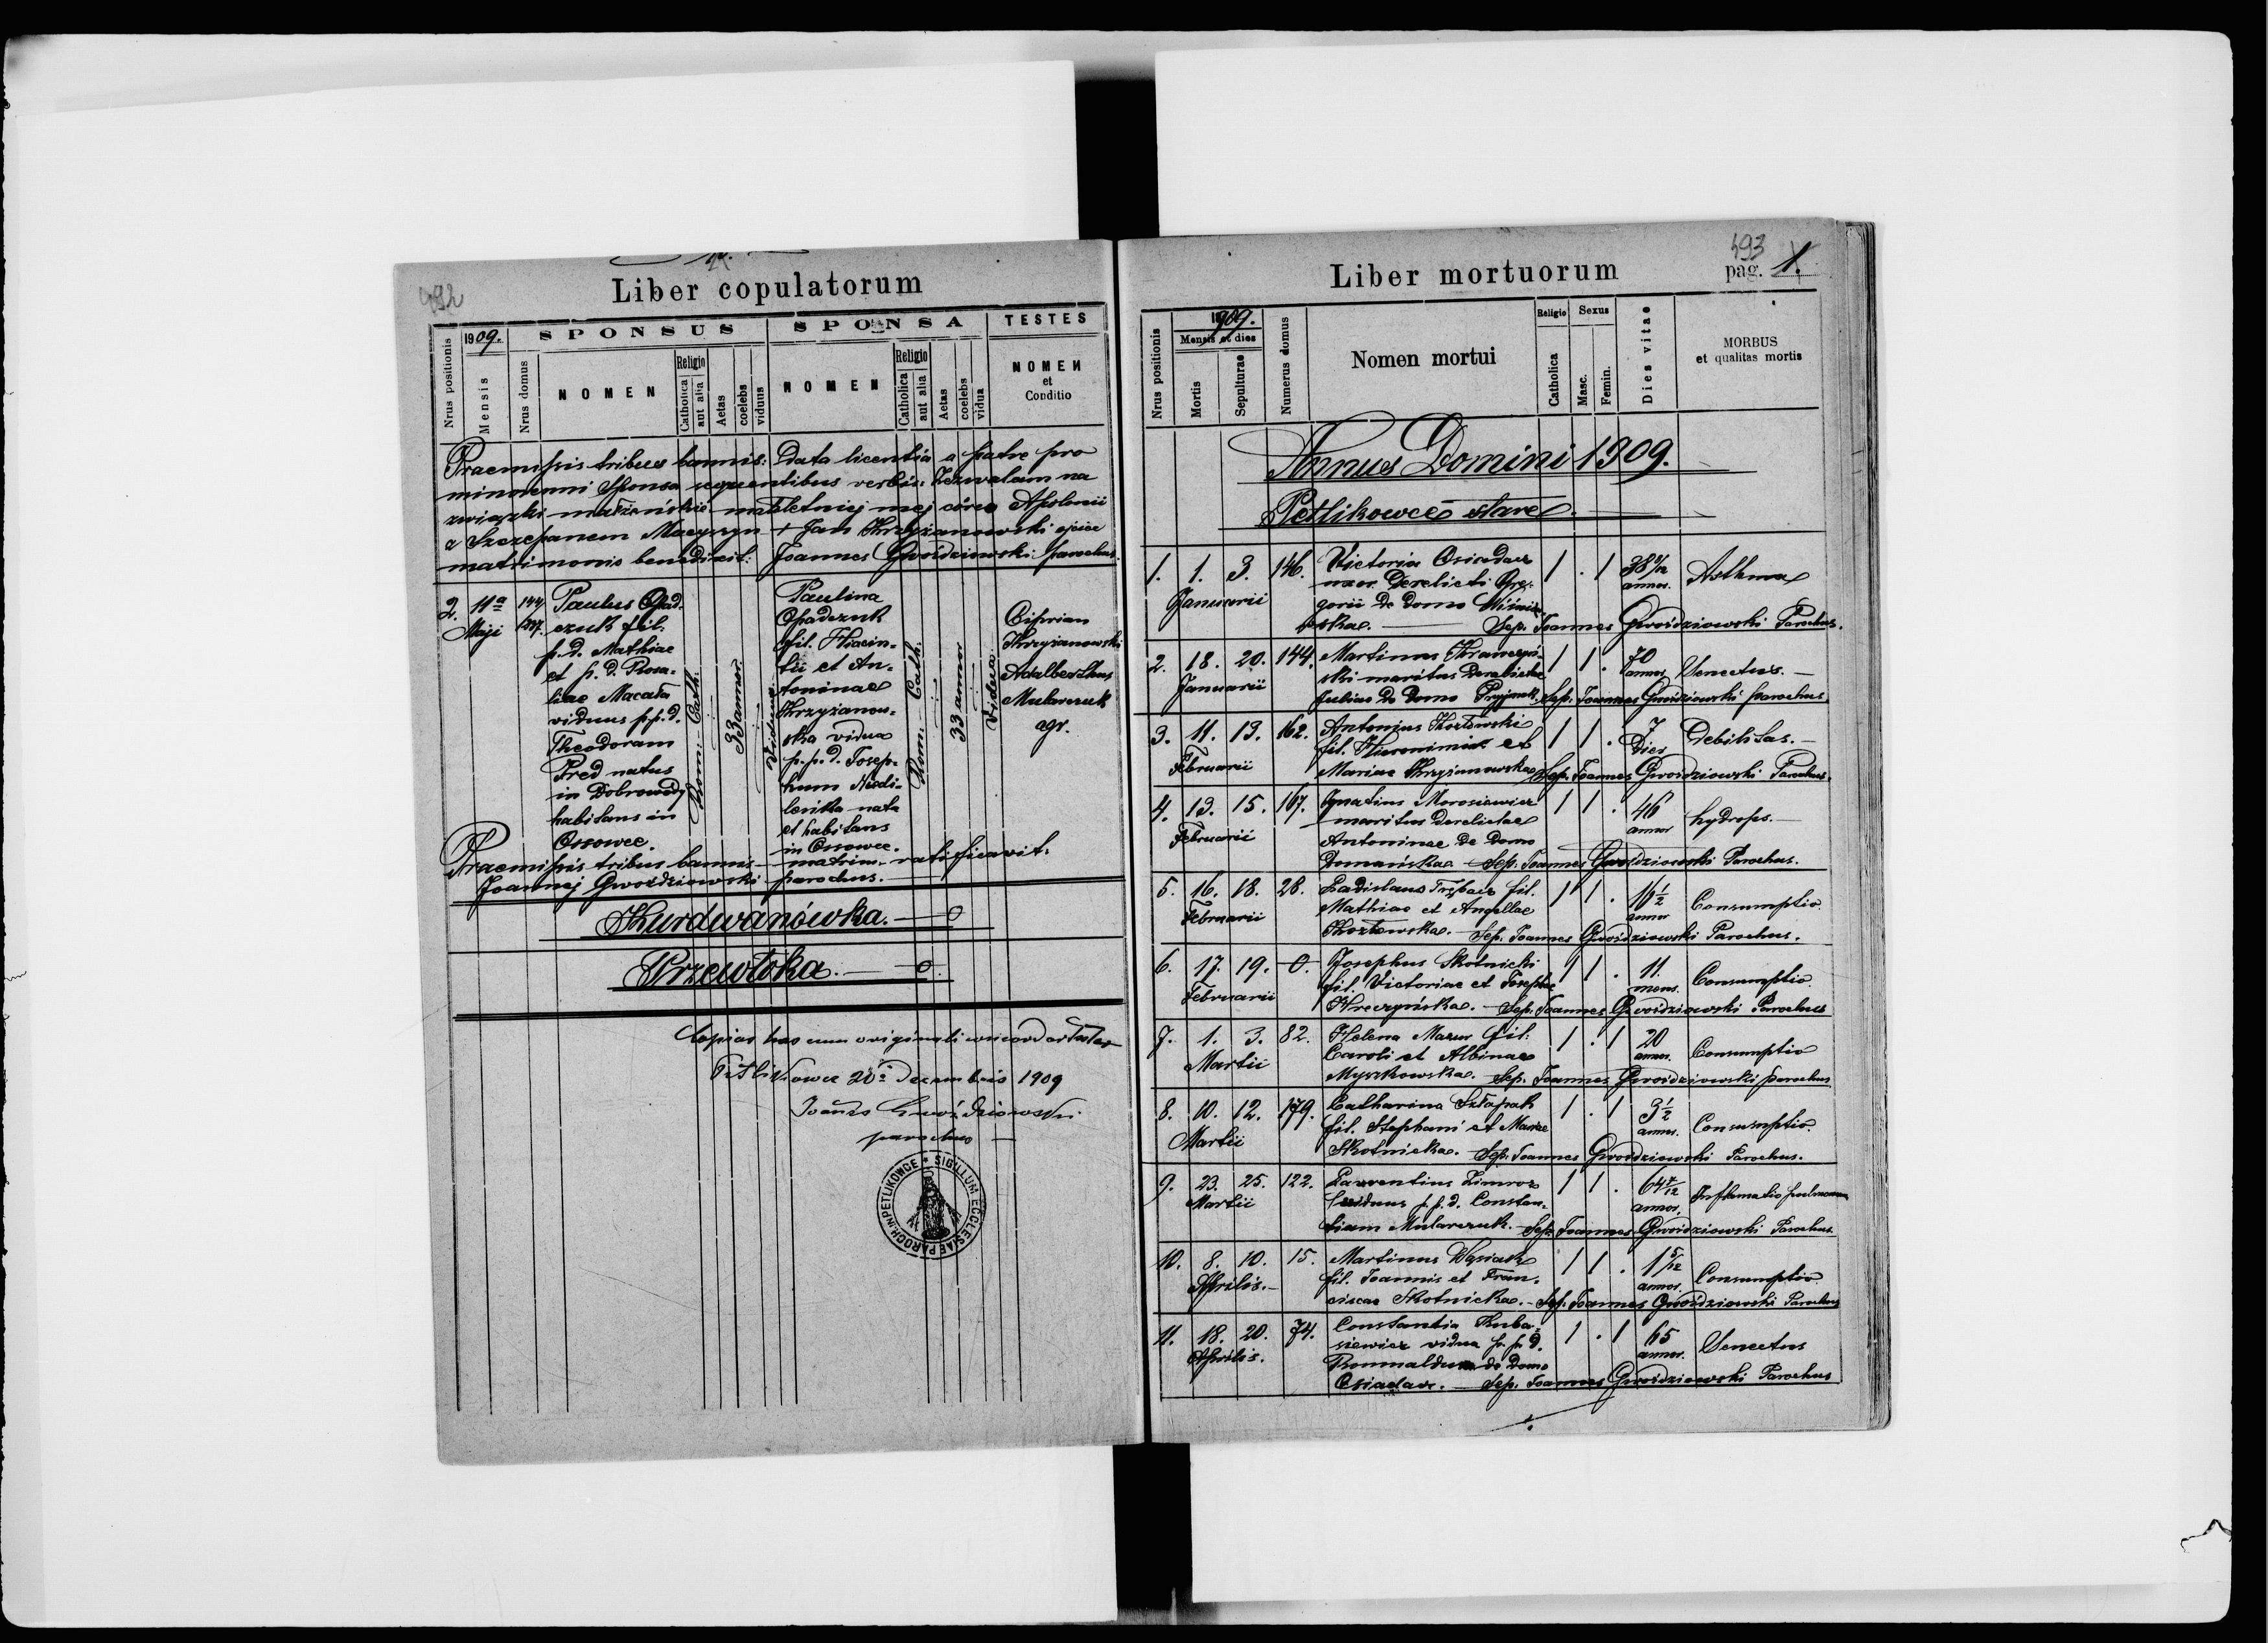 492
Liber copulatorum
1909.
SPONSUS
SPONSA
TESTES
Nrus positionis
Mensis
Nrus domus
NOMEN
Religio
Catholica
aut alia
Aetas
coelebs
viduus
NOMEN
Religio
Catholica
aut alia
Aetas
coelebs
vidua
NOMEN
et
Conditio
Praemissis tribus bannis: Data licentia a patre pro
minorenni Sponsa sequentibus verbis: Zezwalam na
związki małżeńskie małoletniej mej córce Apolonii
z Szczepanem Macyszyn + Jan Krzyżanowski ojciec
matrimonio benedixit: Joannes Gwoździowski parochus.
2. 11a Maji
144
Paulus Opad-
czuk fil.
p. d. Mathiae
et p. d. Rosa-
liae Macała
viduus p.p.d.
Theodoram
Pred natus
in Dobrowody
habitans in
Ossowce.
Rom. Cath.
33 annor.
Viduus
Paulina
Opadczuk
fil. Hiacin-
tii et An-
toninae
Krzyżanow-
ska vidua
p.p.d. Josep-
hum
nata
et habitans
in Ossowce.
Rom. Cath.
33 annor
Vidua
Ciprian
Krzyżanowski
Adalberthus
Mularczuk
agr.
Praemissis tribus bannis matrim. ratificavit.
Joannes Gwoździowski parochus.
Kurdwanówka. — 0
Przewłoka. — 0.
Copias has cum originali concordare testor
Petlikowce 20a Decembris 1909
Joannes Gwoździowski
parochus
SIGILLUM ECCLESIAE PAROCH: IN PETLIKOWCE
493
Liber mortuorum
pag. 1.
Nrus positionis
1909.
Mensis et dies
Mortis
Sepulturae
Numerus domus
Nomen mortui
Religio
Catholica
Sexus
Masc.
Femin.
Dies vitae
MORBUS
et qualitas mortis
Annus Domini 1909.
Petlikowce stare.
1. 1. 3. 146. Victoria Osiadacz 1 . 1 38 annor. Asthma
Januarii uxor Derelicti Gre-
gorii de Domo
Sep. Joannes Gwoździowski Parochus.
2. 18. 20. 144. Martinus 1 1 . 70 annor. Senectus.
Januarii ski maritus Derelictae
Juliae de Domo Sep. Joannes Gwoździowski parochus.
3. 11. 13. 162. Antonius Kozłowski 1 1 . 7 Dies Debilitas.
Februarii fil. Hieronimi et
Mariae Krzyżanowska Sep. Joannes Gwoździowski Parochus.
4. 13. 15. 167. Ignatius Morosiewicz 1 1 . 46 annor hydrops.
Februarii maritus derelictae
Antoninae de Domo
Domańska. Sep. Joannes Gwoździowski Parochus.
5. 16. 18. 28. Ladislaus Trębacz fil. 1 1 . 16 1/2 annor Consumptio.
Februarii Mathiae et Angellae
Kozłowska. Sep. Joannes Gwoździowski Parochus.
6. 17. 19. 0. Josephus Skotnicki 1 1 . 11 mens. Consumptio
Februarii fil. Victoriae et Josephae
Sep. Joannes Gwoździowski Parochus
7. 1. 3. 82. Helena Mazur fil. 1 . 1 20 annor. Consumptio
Martii Caroli et Albinae
Myszkowska. Sep. Joannes Gwoździowski parochus
8. 10. 12. 179. Catharina Szłapak 1 . 1 3 1/2 annor. Consumptio.
Martii fil. Stephani et Mariae
Skotnicka. Sep. Joannes Gwoździowski Parochus.
9. 23. 25. 122. Laurentius Zimroz 1 1 . 64 7/12 annor. Inflamatio pulmonum
Martii viduus p.p.d. Constan-
tiam Mularczuk. Sep. Joannes Gwoździowski Parochus
10. 8. 10. 15. Martinus Wąsiak 1 1 . 1 5/12 annor. Consumptio
Aprilis. fil. Joannis et Fran-
ciscae Skotnicka. Sep. Joannes Gwoździowski Parochus
11. 18. 20. 74. Constantia Kuba- 1 . 1 65 annor. Senectus
Aprilis. siewicz vidua p.p.d.
Romualdum de Domo
Osiadacz. Sep. Joannes Gwoździowski Parochus